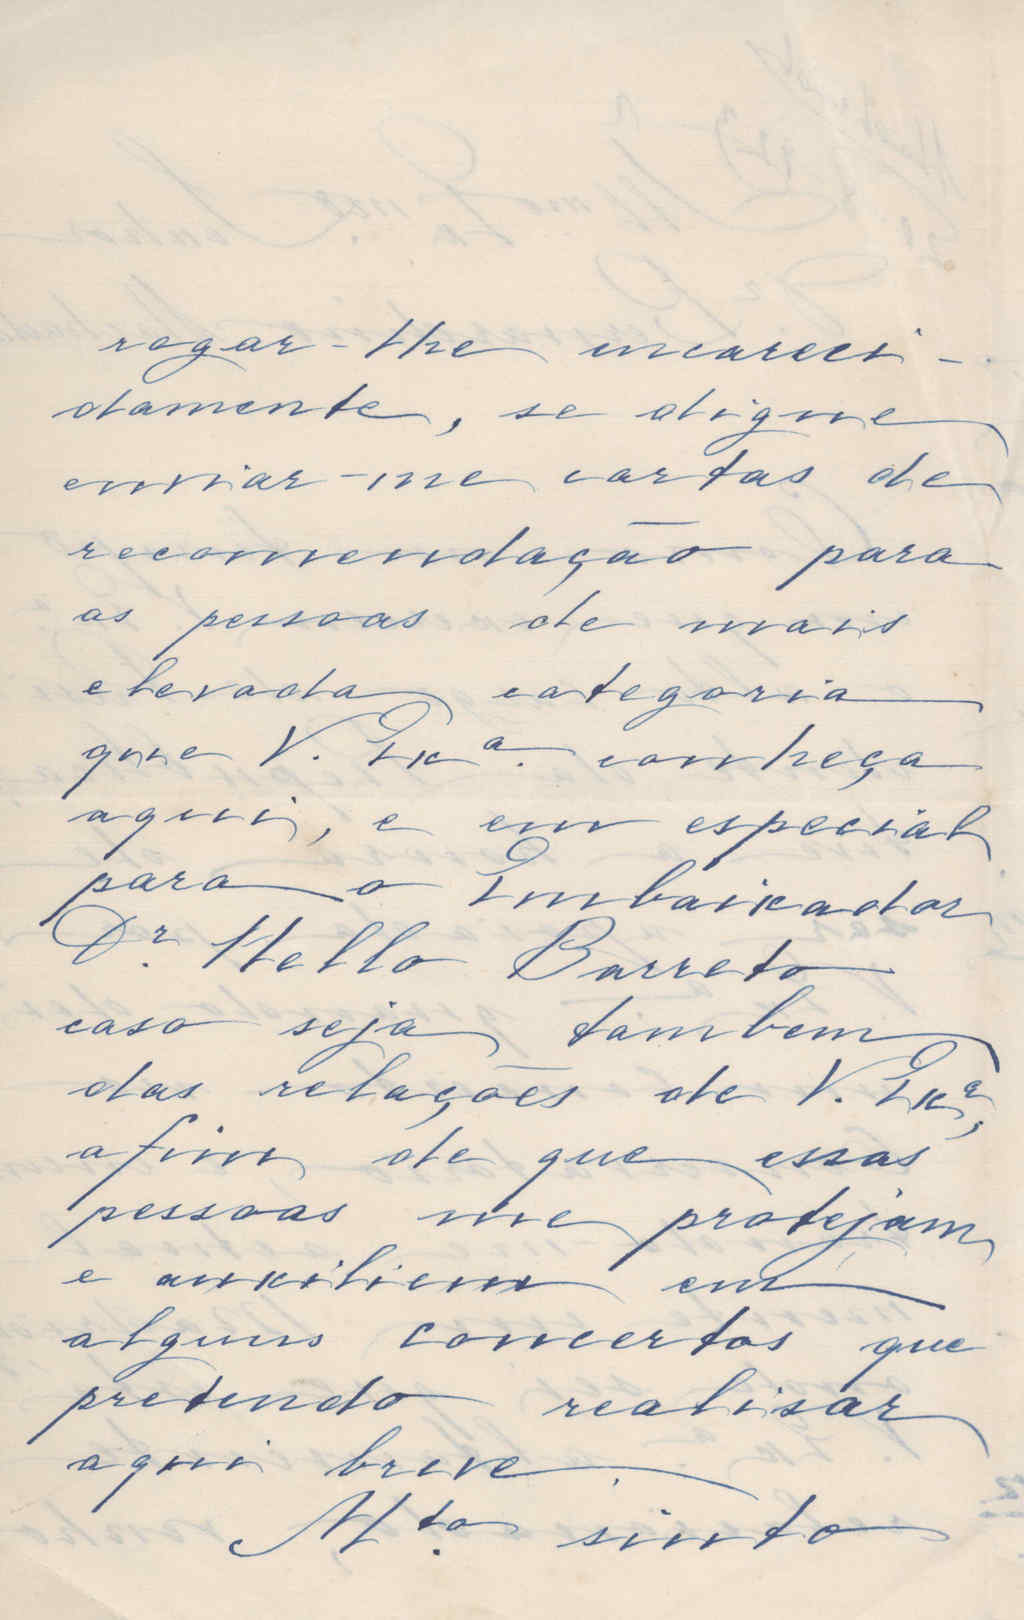 rogar-lhe encareci-
damente, se digne
enviar-me cartas de
recomendação para
as pessoas de mais
elevada categoria
que V. Exª. conheça
aqui, e em especial
para o Embaixador
Dr. Mello Barreto
caso seja tambem
das relações de V. Exª,
afim de que essas
pessoas me protejam
e auxiliem em
alguns concertos que
pretendo realisar
aqui breve.
Mto. sinto